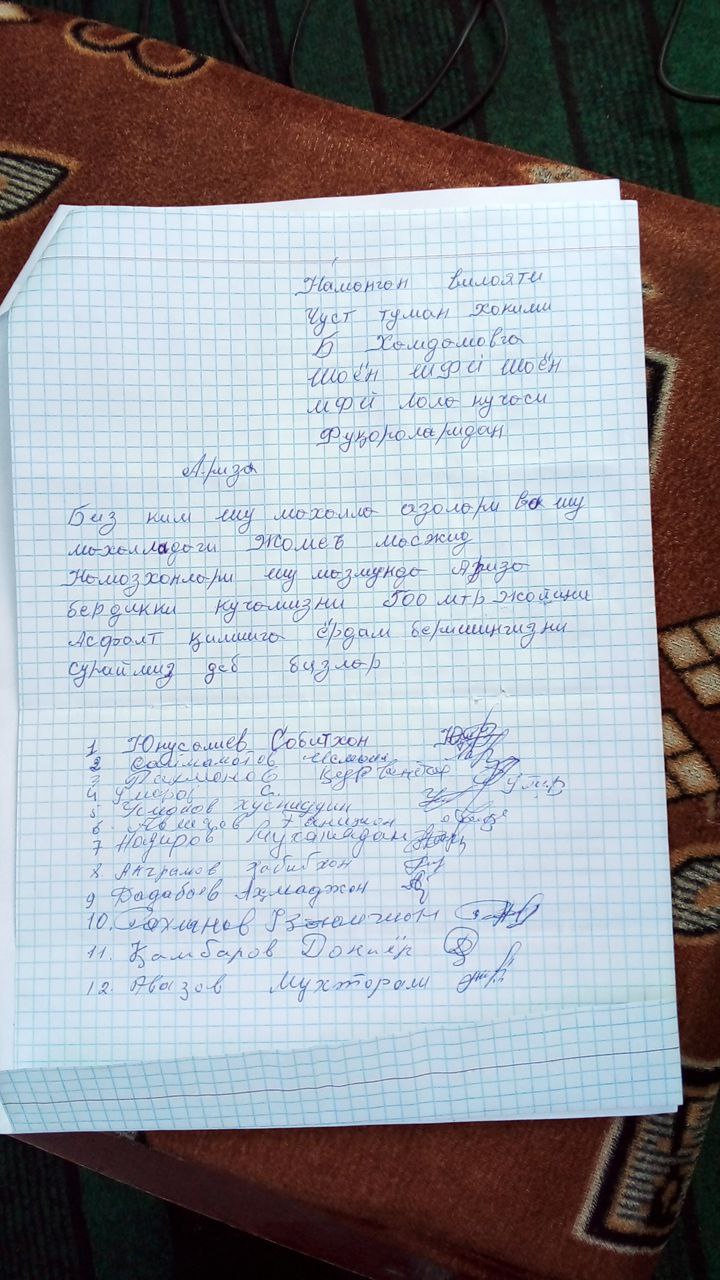 Намонгон вилояти
Чуст туман хокими
Б Хомдомовга
Шоён МФЙ Шоён
МФЙ Лола кучаси
Фуқороларидан
Ариза
Биз ким шу мохолла азолари ва шу
мохолладаги Жомеъ масжид
Номозхонлари шу мазмунда Аризо
бердикки кучамизни 500 мтр жойини
Асфалт қилишга ёрдам беришингизни
сураймиз деб бизлар
1 Юнусалиев Собитхон
2
3 Рахмонов
4 Умаров С.
5 Усмонов Хусниддин
6.
7 Нодиров
8 Ахрамов Хабибхон
9 Дадабоев Ахмаджон
10.
11. Қамбаров Дониёр
12. Авазов Мухторали